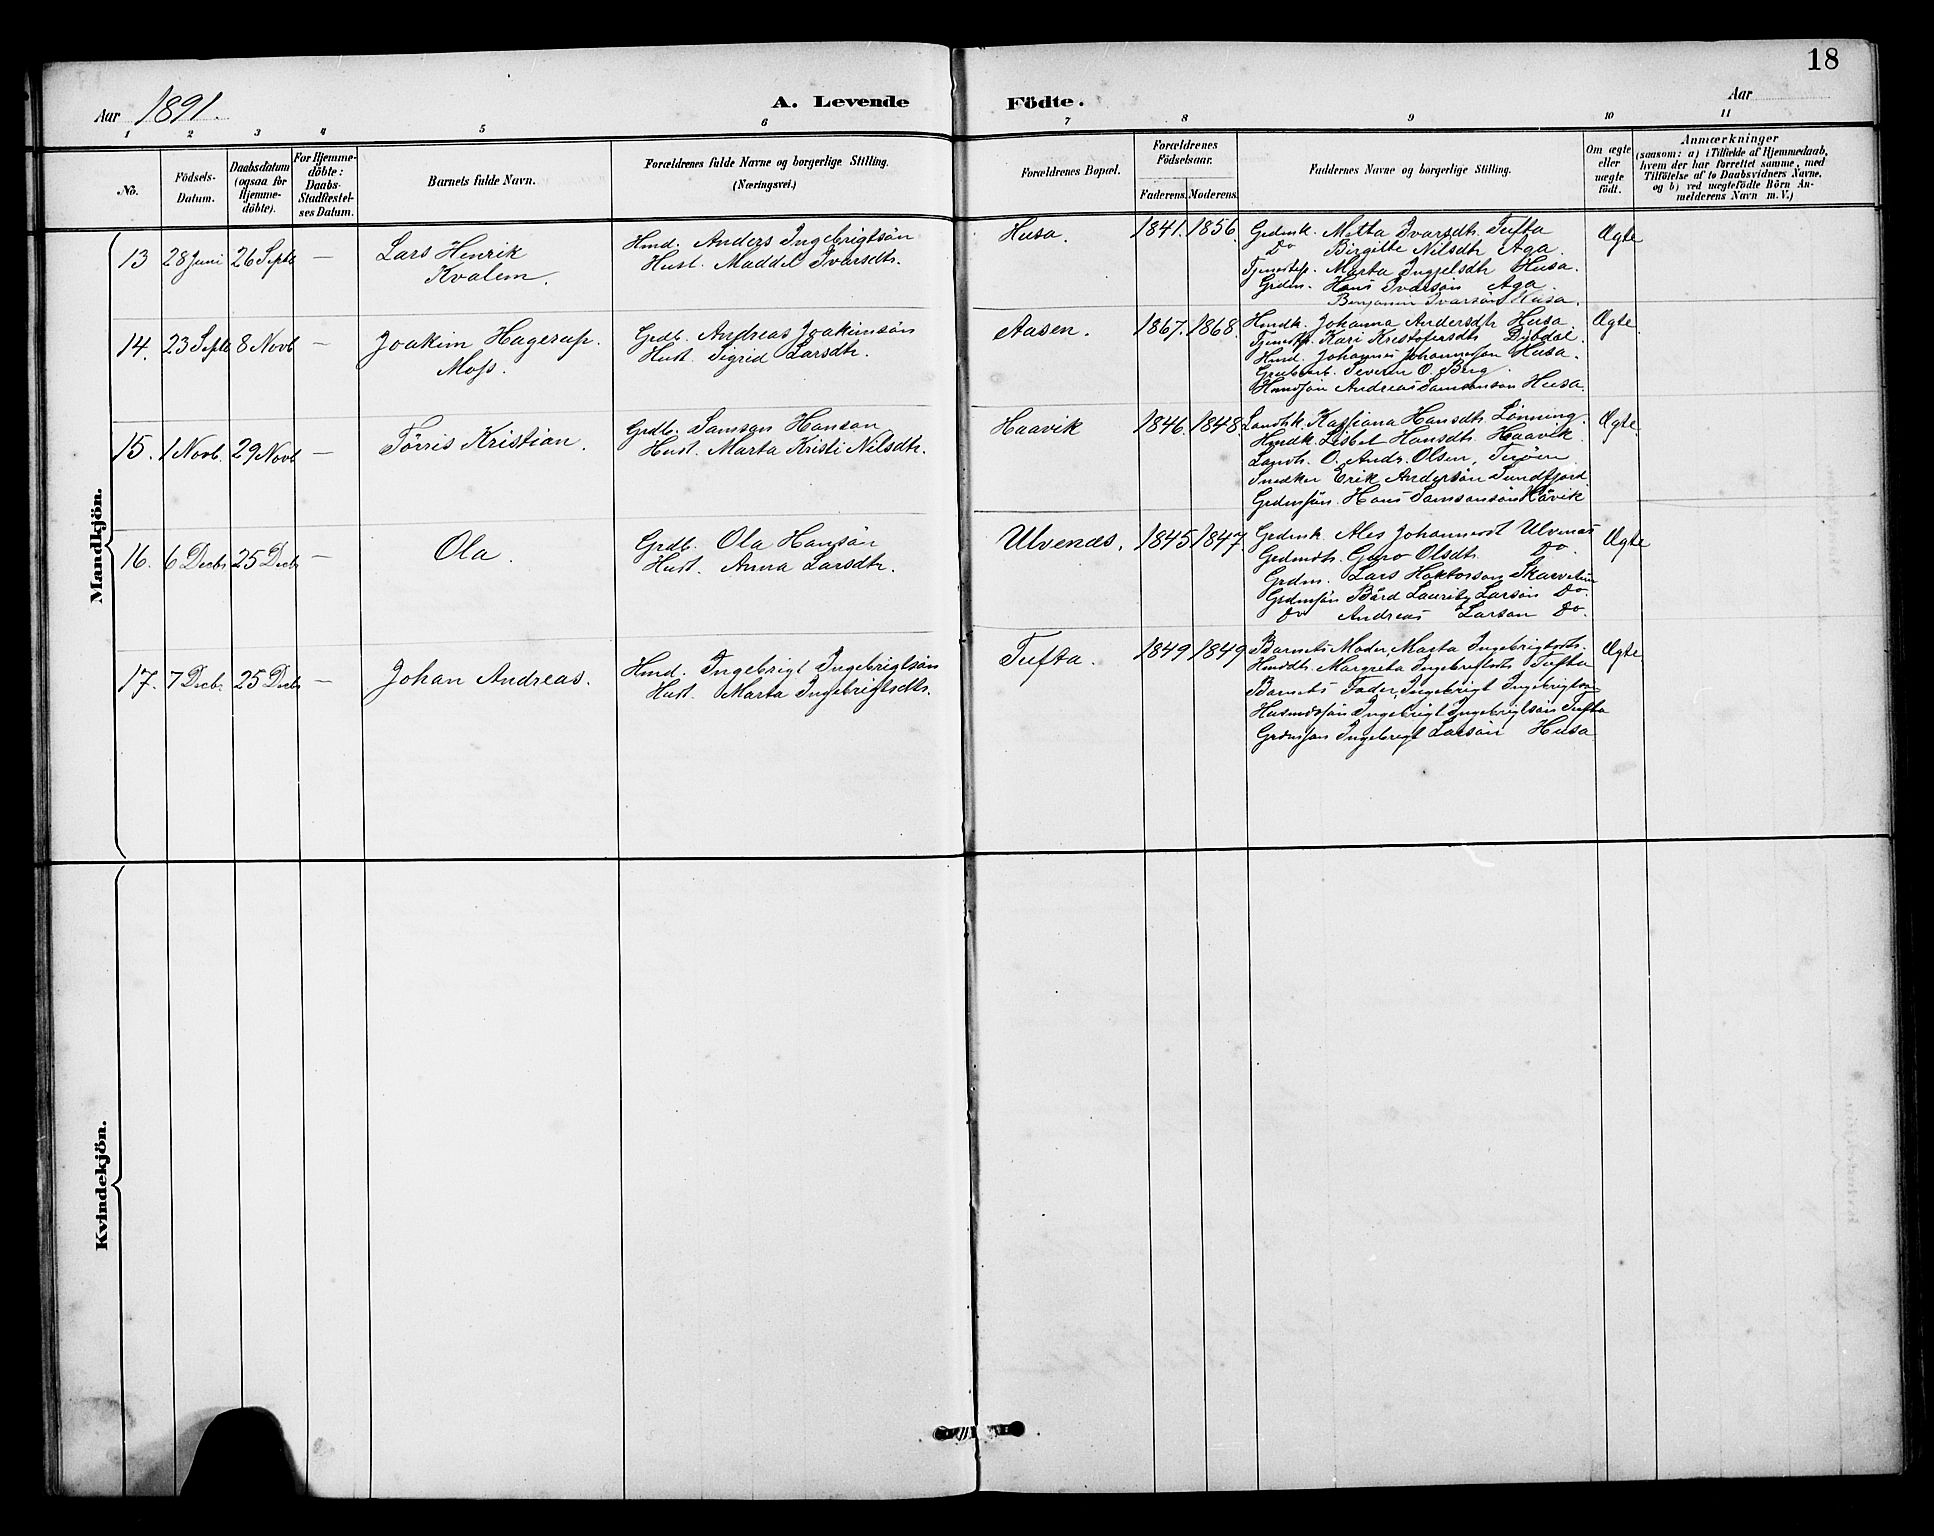 18
Aar 1891.
A. Levende Födte.
Aar
1 2 3 4 5 6 7 8 9 10 11
No.
Födsels-
Datum.
Daabsdatum
(ogsaa for
Hjemme-
döbte).
For Hjemme-
döbte:
Daabs-
Stadfæstel-
ses Datum.
Barnets fulde Navn.
Forældrenes fulde Navne og borgerlige Stilling.
(Næringsvei.)
Forældrenes Bopæl.
Forældrenes
Födselsaar.
Faderens. Moderens.
Faddernes Navne og borgerlige Stilling.
Om ægte
eller
uægte
födt.
Anmærkninger
(saasom: a) i Tilfælde af Hjemmedaab,
hvem der har forrettet samme, med
Tilföielse af to Daabsvidners Navne,
og b) ved uægtefödte Börn An-
melderens Navn m. V.)
Mandkjön.
13 28 Juni 26 Septb —
Lars Henrik
Kvalem.
Hmd. Anders Ingebrigtsön
Hust. Maddel Ivarsdtr.
Husa. 1841. 1856.
Grdmk. Metta Ivarsdtr. Tufta
Do Birgitte Nilsdtr Aga
Tjenestep. Marta Ingjelsdtr Husa.
Grdm. Hans Ivarsön Aga.
Benjamin Ivarsön Husa.
Ægte
14. 23 Septb 8 Novb —
Joakim Hagerup.
Moss.
Grdb. Andreas Joakimsön
Hust. Sigrid Larsdtr.
Aasen. 1867. 1868.
Hmdk. Johanna Andersdtr Husa
Tjenestp. Kari Kristofersdtr Dybdal.
Hmd. Johannes Johannesson Husa.
Severin O. Berg.
Hmdsön Andreas Samsonson Husa.
Ægte.
15. 1 Novb. 29 Novb —
Törris Kristian.
Grdb. Samson Hanson
Hust. Marta Kristi Nilsdtr.
Haavik 1846. 1848.
Landhk. Kassiana Hansdtr. Lönning.
Hmdk. Lisbet Hansdtr. Haavik.
Landh. O. Andr. Olsen,
Snedker Erik Andersön Sundfjord.
Grdmsön. Hans Samsonsön Håvik
Ægte.
16. 6 Decbr 25 Decbr —
Ola.
Grdb. Ola Hansön
Hust. Anna Larsdtr.
Ulvenæs. 1845 1847.
Grdmk. Ales Johannesdt Ulvenæs
Grdmdtr. Guro Olsdtr. Do.
Grdm. Lars Haktorson
Grdmsön Bård Laurits Larsön Do.
Do Andreas Larson Do.
Ægte
17. 7 Decb. 25 Decbr —
Johan Andreas.
Hmd. Ingebrigt Ingebrigtsön
Hust. Marta Ingebrigtsdtr.
Tufta. 1849 1849
Barnets Moder Marta Ingebrigtsdtr.
Hmddtr. Margreta Ingebrigtsdtr Tufta
Barnets Fader, Ingebrigt Ingebrigtsön
Husmdssön Ingebrigt Ingebrigtsön Tufta
Grdmsön Ingebrigt Larsön Husa
Ægte.
Kvindekjön.